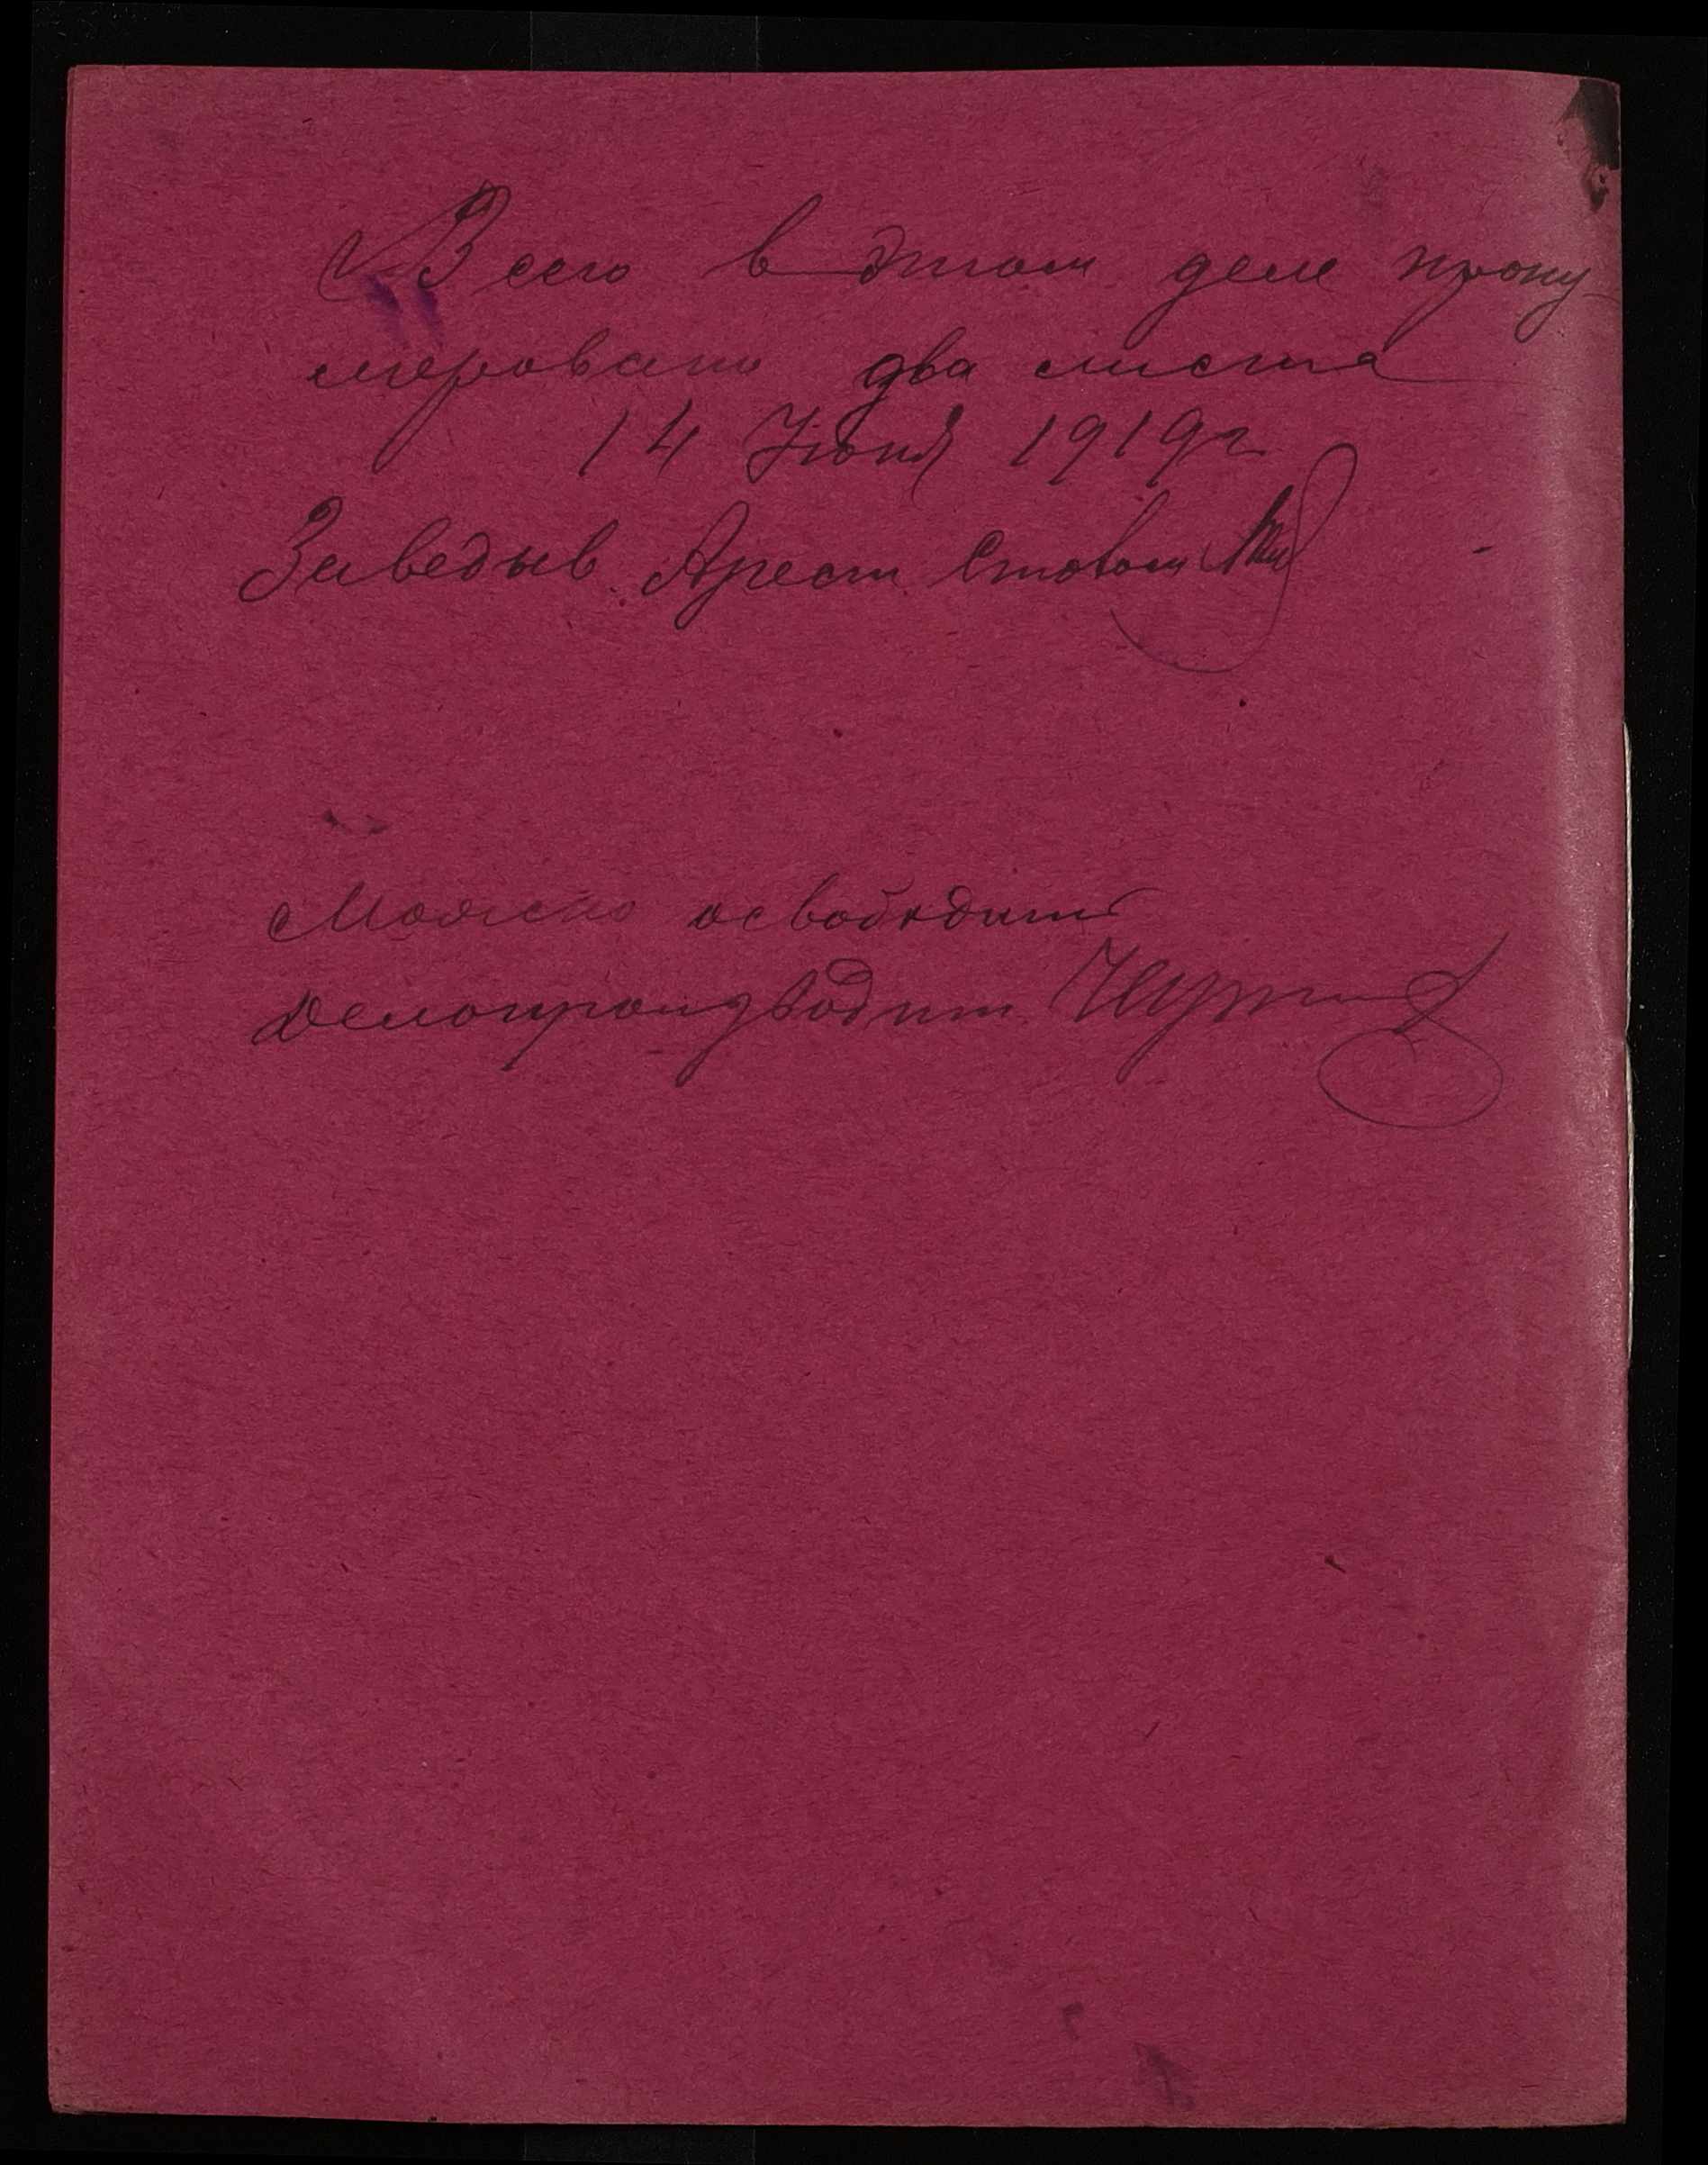 Всего в этом деле прону
меровано два листа
14 Июня 1919 г
Заведыв. Арест Столом
Можно освободить
Делопроизводит.